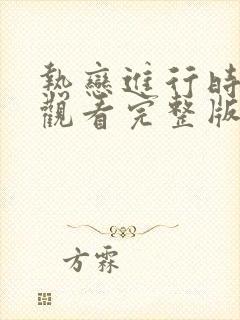 熱戀進行時
觀看完整版
方霖